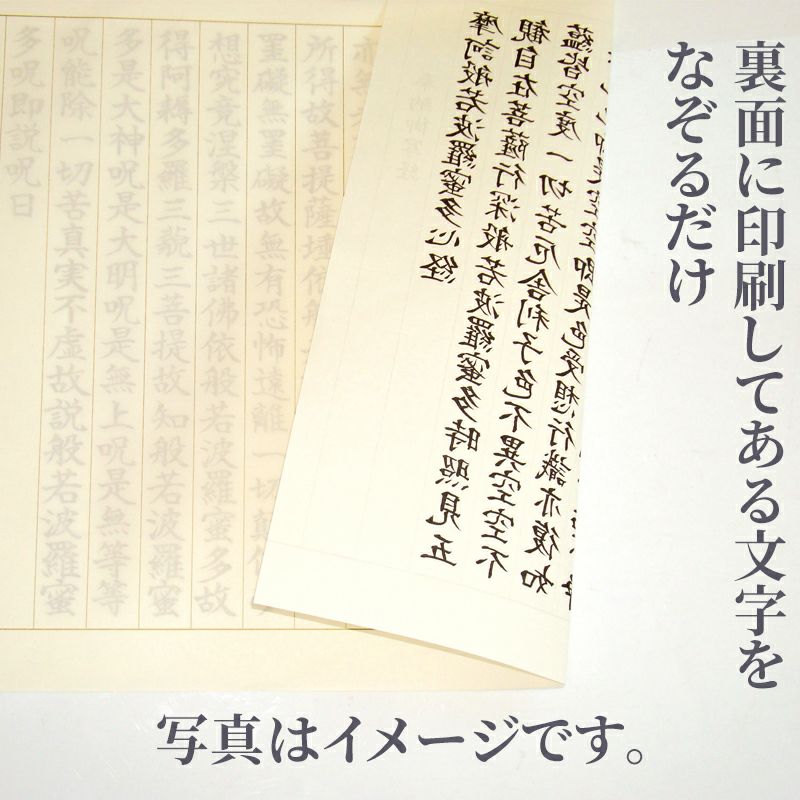 裏面に印刷してある文字を
なぞるだけ
摩訶般若波羅蜜多心経
観自在菩薩行深般若波羅蜜多時照見五
蘊皆空度一切苦厄舎利子色不異空空不
即是空空即是色受想行識亦復如
亦無
所得故菩提薩埵依般
罣礙無罣礙故無有恐怖遠離一切顛
想究竟涅槃三世諸佛依般若波羅蜜多故
得阿耨多羅三藐三菩提故知般若波羅蜜
多是大神呪是大明呪是無上呪是無等等
呪能除一切苦真実不虚故説般若波羅蜜
多呪即説呪曰
写真はイメージです。